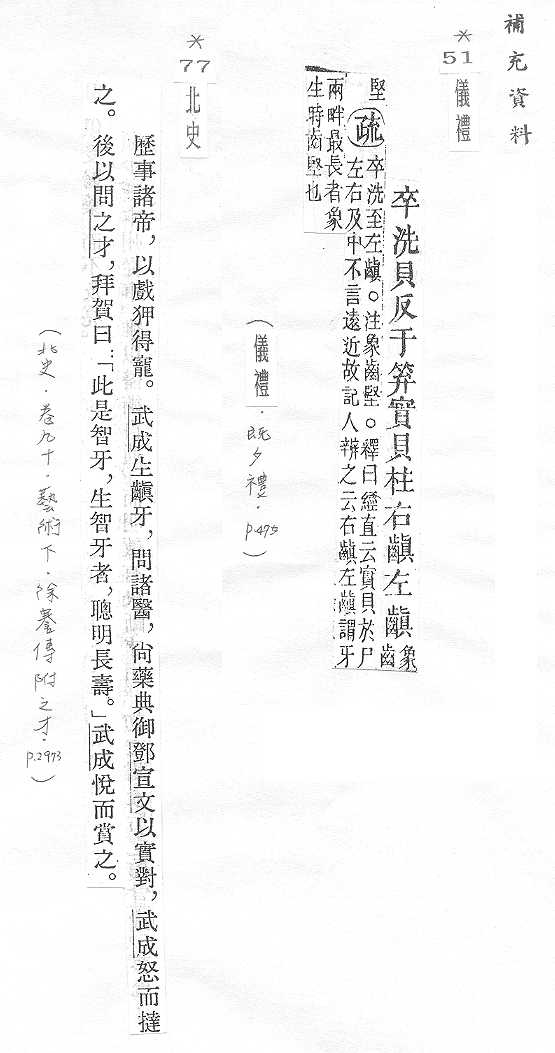 補充資料
*
51
儀禮
卒洗貝反于笲實貝柱右齻左齻象齒
堅
疏卒洗至左齻。注象齒堅。釋曰經直云實貝於尸
左右及中不言遠近故記人辨之云右齻左齻謂牙
兩畔最長者象
生時齒堅也
(儀禮.既夕禮.p.475)
*
77
北史
歷事諸帝,以戲狎得寵。武成生齻牙,問諸醫,尚藥典御鄧宣文以實對,武成怒而撻
之。後以問之才,拜賀曰:「此是智牙,生智牙者,聰明長壽。」武成悅而賞之。
(北史.卷九十.藝術下.徐謇傳附之才.p.2973)